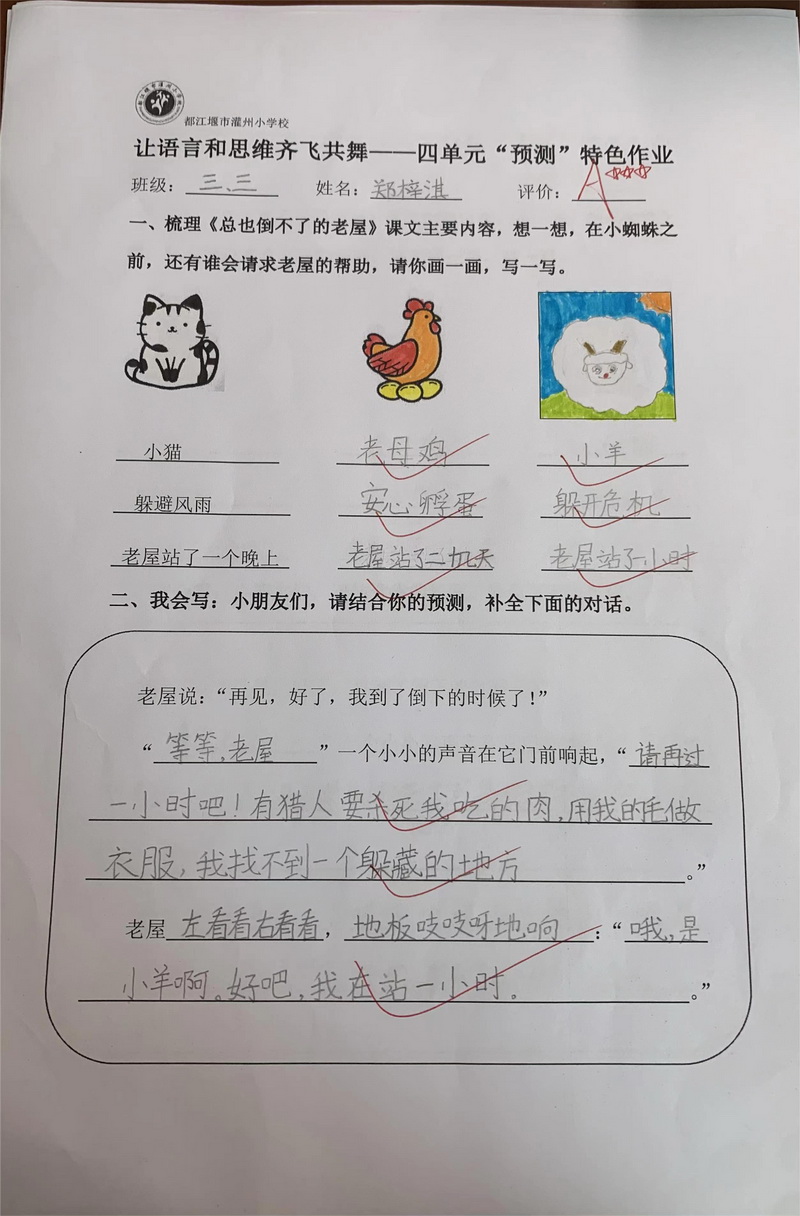 都江堰市灌州小学校
让语言和思维齐飞共舞——四单元“预测”特色作业
班级：三、三 姓名：郑梓淇 评价：A
一、梳理《总也倒不了的老屋》课文主要内容，想一想，在小蜘蛛之
前，还有谁会请求老屋的帮助，请你画一画，写一写。
小猫 老母鸡 小羊
躲避风雨 安心孵蛋 躲开危机
老屋站了一个晚上 老屋站了二十九天 老屋站了一小时
二、我会写：小朋友们，请结合你的预测，补全下面的对话。
老屋说：“再见，好了，我到了倒下的时候了！”
“等等，老屋”一个小小的声音在它门前响起，“请再过
一小时吧！有猎人要杀死我吃的肉，用我的毛做
衣服，我找不到一个躲藏的地方。”
老屋左看看右看看，地板吱吱呀地响：“哦，是
小羊啊。好吧，我在站一小时。。”